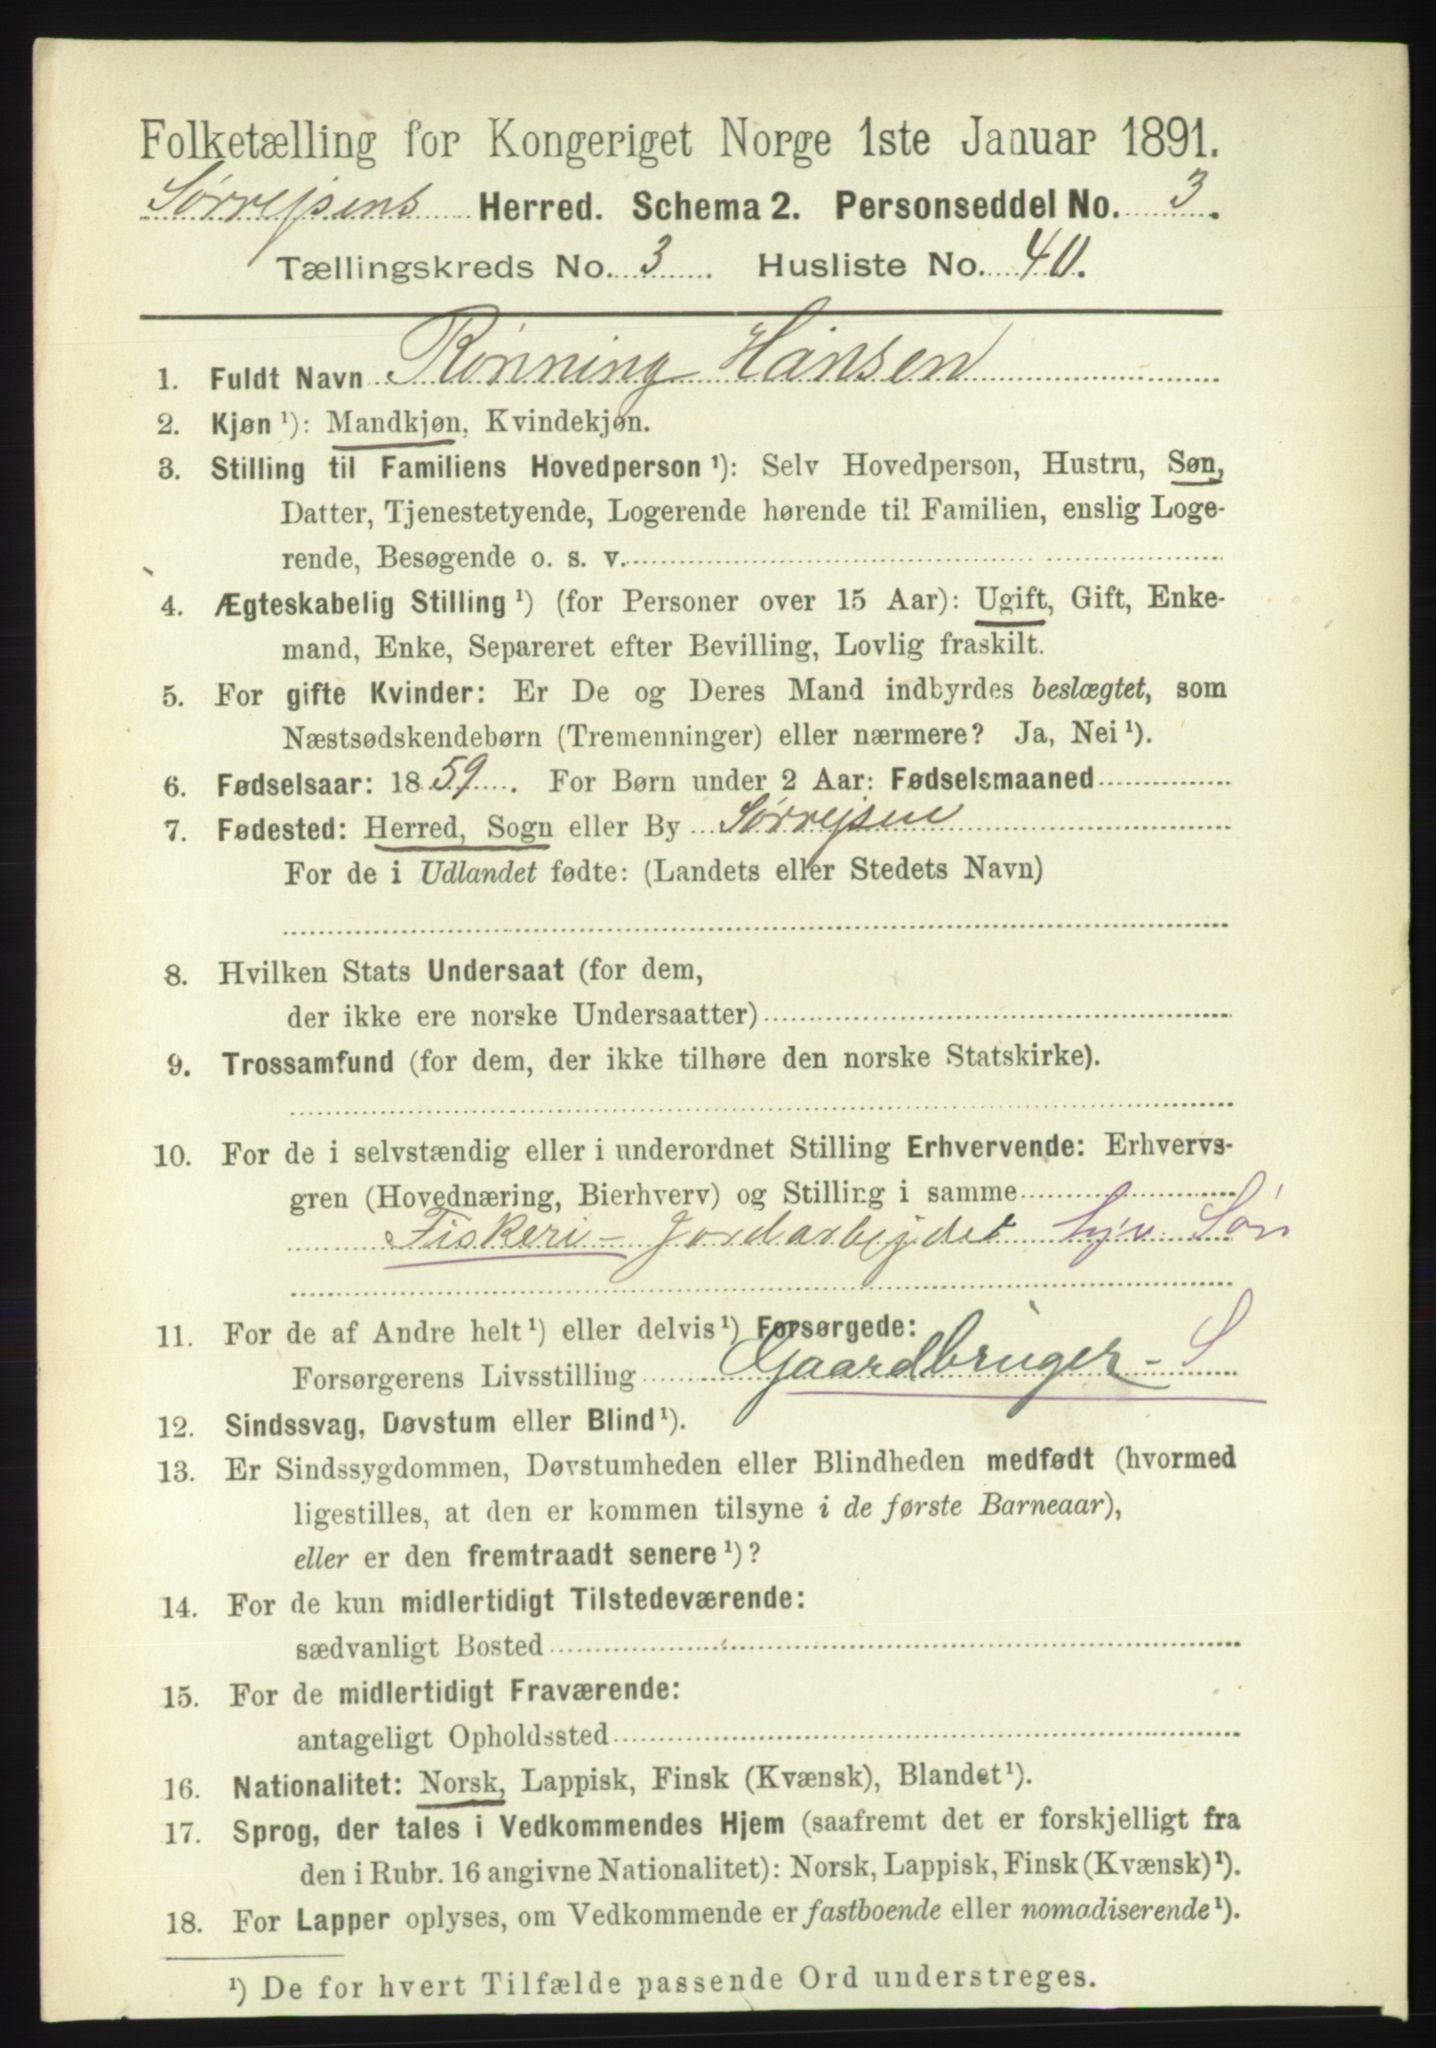 Folketælling for Kongeriget Norge 1ste Januar 1891.
Sørrejsens Herred. Schema 2. Personseddel No. 3.
Tællingskreds No. 3. Husliste No. 40.
1. Fuldt Navn Rønning Hansen
2. Kjøn ¹): Mandkjøn, Kvindekjøn.
3. Stilling til Familiens Hovedperson ¹): Selv Hovedperson, Hustru, Søn,
Datter, Tjenestetyende, Logerende hørende til Familien, enslig Loge-
rende, Besøgende o. s. v.
4. Ægteskabelig Stilling ¹) (for Personer over 15 Aar): Ugift, Gift, Enke-
mand, Enke, Separeret efter Bevilling, Lovlig fraskilt.
5. For gifte Kvinder: Er De og Deres Mand indbyrdes beslægtet, som
Næstsødskendebørn (Tremenninger) eller nærmere? Ja, Nei ¹).
6. Fødselsaar: 1859. For Børn under 2 Aar: Fødselsmaaned
7. Fødested: Herred, Sogn eller By Sørrejsen
For de i Udlandet fødte: (Landets eller Stedets Navn)
8. Hvilken Stats Undersaat (for dem,
der ikke ere norske Undersaatter)
9. Trossamfund (for dem, der ikke tilhøre den norske Statskirke).
10. For de i selvstændig eller i underordnet Stilling Erhvervende: Erhvervs-
gren (Hovednæring, Bierhverv) og Stilling i samme
Fiskeri - Jordarbejdet hjv. Søn
11. For de af Andre helt ¹) eller delvis ¹) Forsørgede:
Forsørgerens Livsstilling Gaardbruger - S
12. Sindssvag, Døvstum eller Blind ¹).
13. Er Sindssygdommen, Døvstumheden eller Blindheden medfødt (hvormed
ligestilles, at den er kommen tilsyne i de første Barneaar),
eller er den fremtraadt senere ¹)?
14. For de kun midlertidigt Tilstedeværende:
sædvanligt Bosted
15. For de midlertidigt Fraværende:
antageligt Opholdssted
16. Nationalitet: Norsk, Lappisk, Finsk (Kvænsk), Blandet ¹).
17. Sprog, der tales i Vedkommendes Hjem (saafremt det er forskjelligt fra
den i Rubr. 16 angivne Nationalitet): Norsk, Lappisk, Finsk (Kvænsk) ¹).
18. For Lapper oplyses, om Vedkommende er fastboende eller nomadiserende ¹).
¹) De for hvert Tilfælde passende Ord understreges.